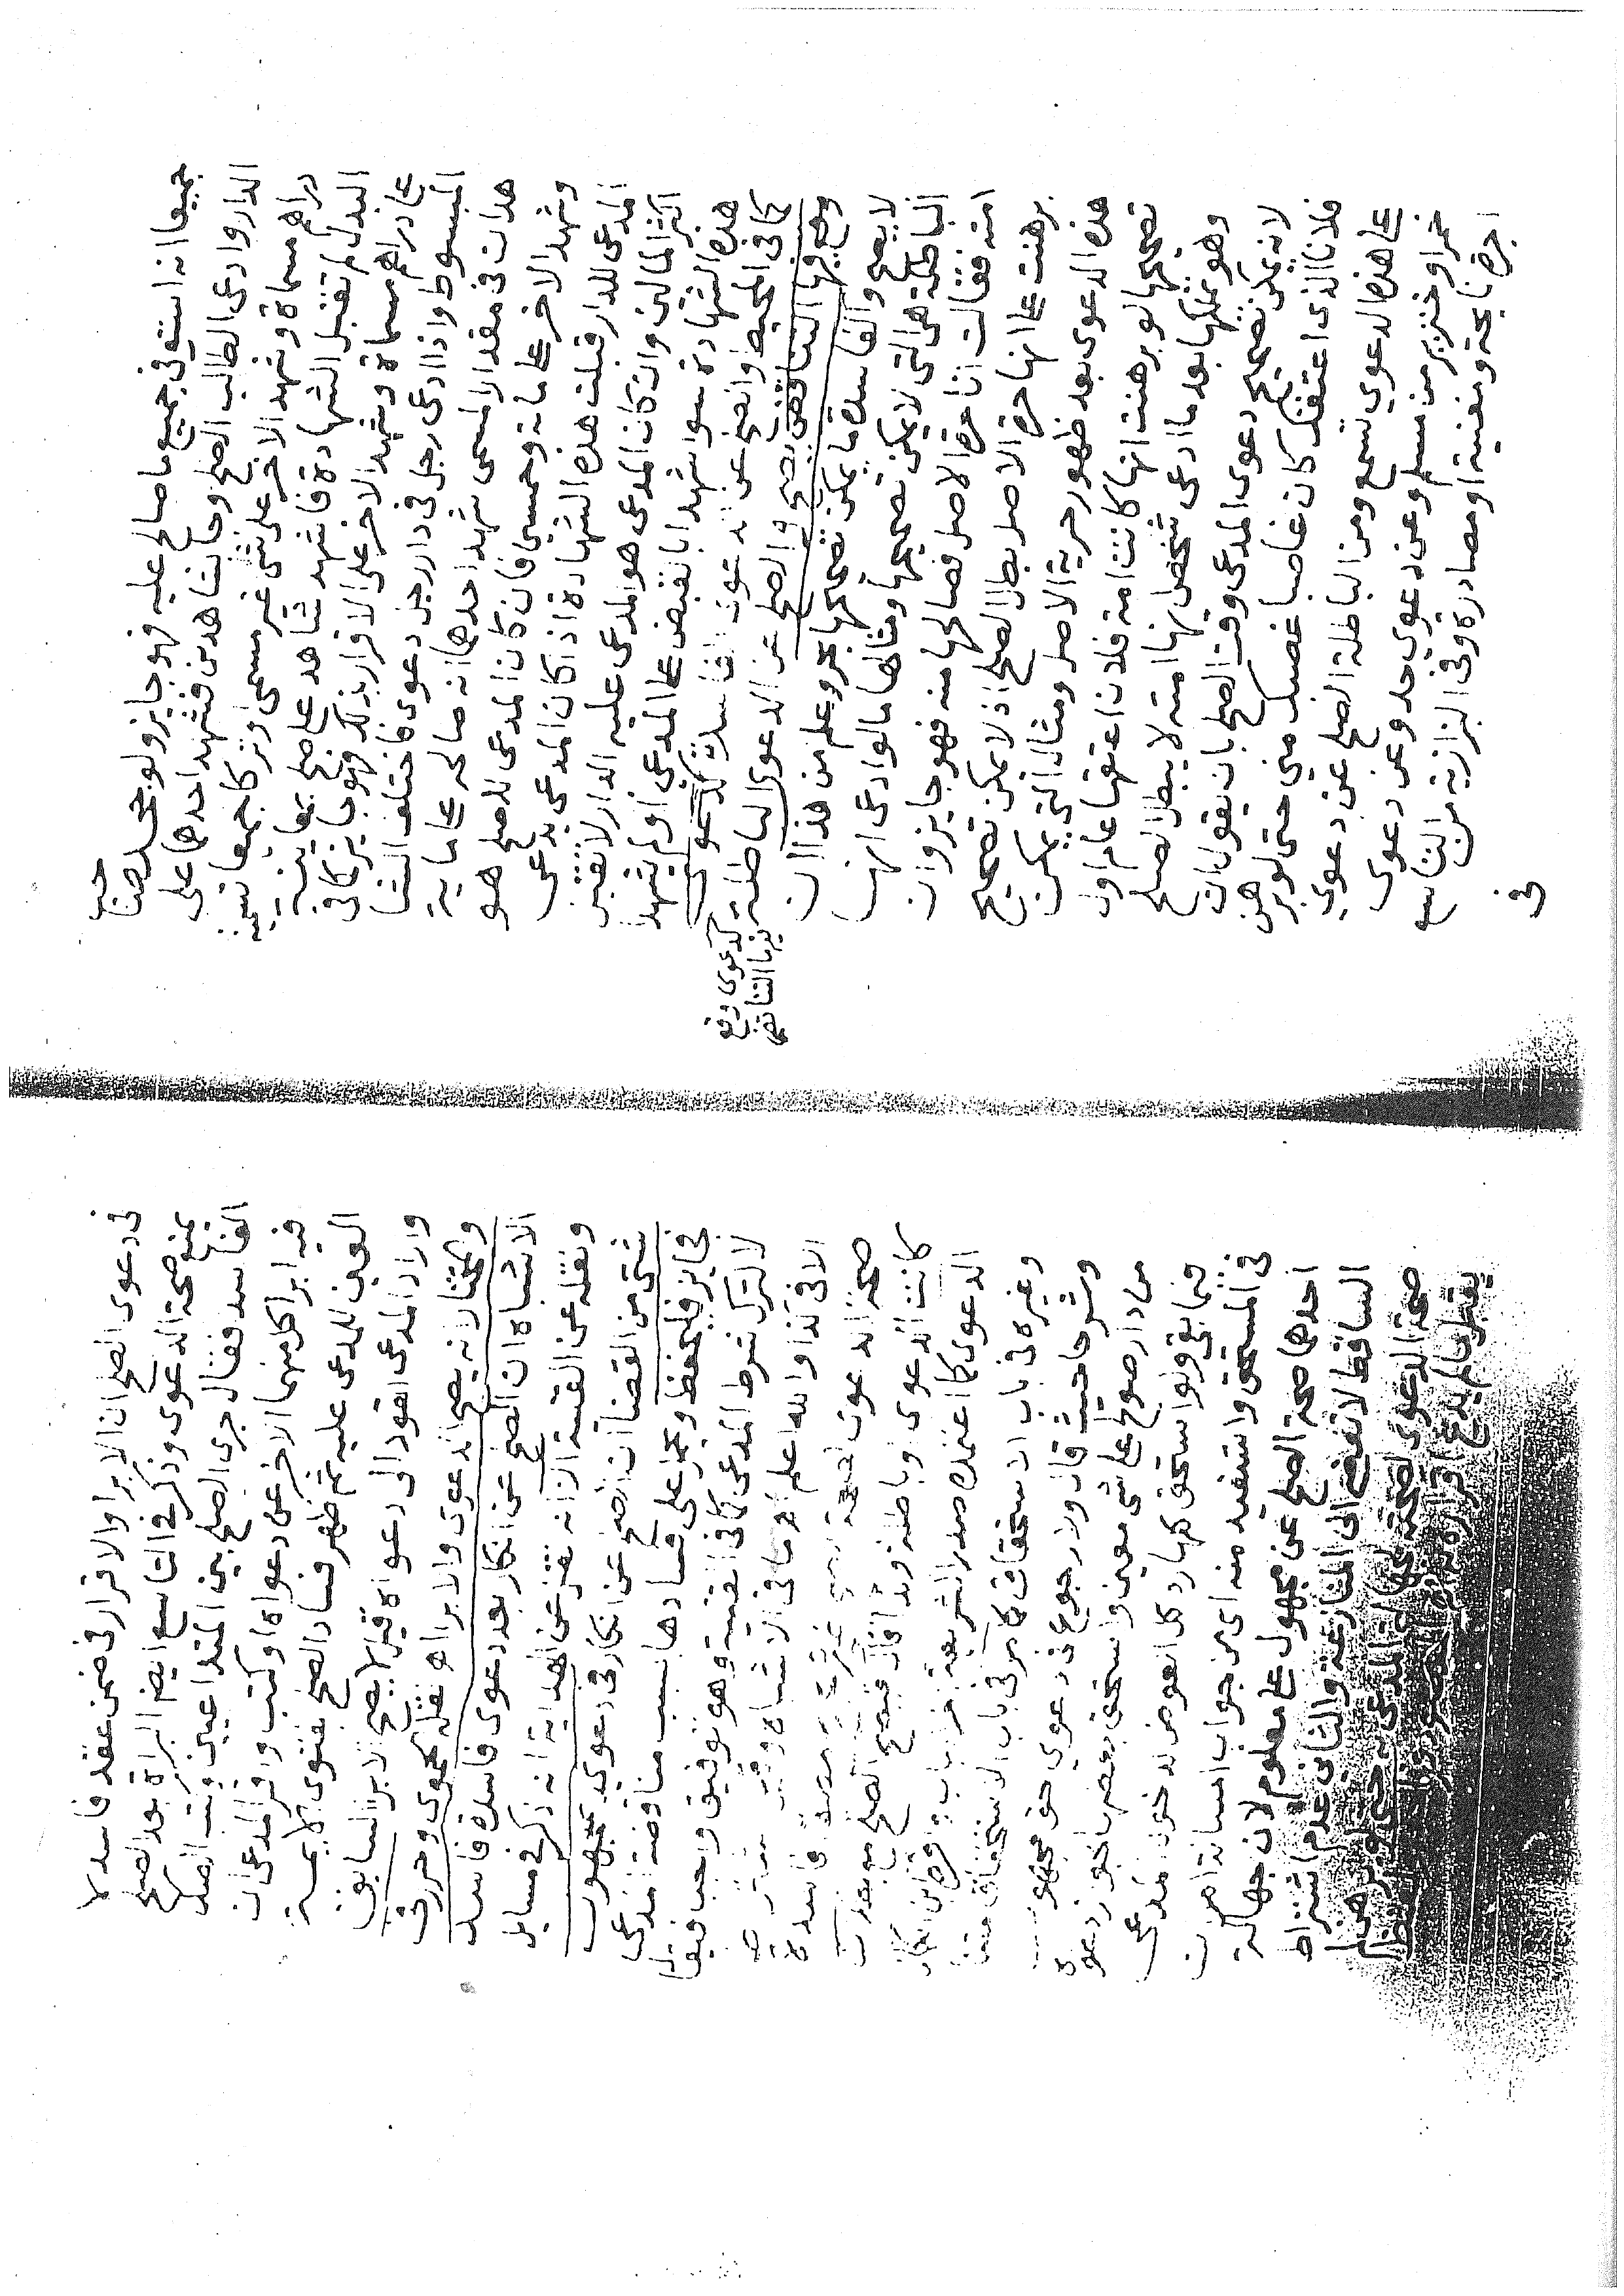 جميعا انه استوفى جميع ما صالح عليه فهو جايز ولو جحد صبا
حب
الدار وادعى الطالب الصلح وجا بشاهدين فشهد احدهما على
دراهم مسماة وشهد الاخر على شى غير مسمى او تركا جميعا تسمية
البدل لم تقبل الشهادة فاشهد شاهد على صلح بمعاينة
على دراهم مسماة وشهد الاخر على الاقرار بذلك فهو جايز كما فى
المبسوط واذا ادعى رجل فى دار رجل دعوى فاختلف الشا
هدان فى مقدار المسمى شهد احدهما انه صالحه على ماية
وشهد الاخر على ماية وخمسين فان كان المدعى للصلح هو
المدعى للدار قبلت هذه الشهادة اذا كان المدعى يدعى
اكثر المالين وان كان المدعى هو المدعى عليه الدار لا تقبل
هذه الشهادة سوا شهدا بالقبض على المدعى او لم يشهدا
كما فى المحيط والصلح عن الدعوى الفاسدة كدعوى
كدعوى وقع
فيها التناقض
وقع فيها التناقض يصح والصلح عن الدعوى الباطلة
لا يصح والفاسدة ما يمكن تصحيحها بحر وعلم من هذا ان
الباطلة هى التى لا يمكن تصحيحها ومثالها ما لو ادعى انها
امته فقالت انا حرة الاصل فصالحها منه فهو جايز وان
برهنت على انها حرة الاصل بطل الصلح اذ لا يمكن تصحيح
هذه الدعوى بعد ظهور حرية الاصل ومثال التى يمكن
تصحيحها لو برهنت انها كانت امة فلان اعتقها عام اول
وهو يملكها بعد ما ادعى شخص انها امته لا يبطل الصلح
لانه يمكن تصحيح دعوى المدعى وقت الصلح بان يقول ان
فلانا الذى اعتقك كان غاصبا غصبك منى حتى لو برهن
على هذه الدعوى تسمع ومن الباطلة الصلح عن دعوى
خمر او خنزير من مسلم وعن دعوى حد وعن دعوى
اجرة نايحة ومغنية او مصادرة وفى البزازية من التاسع
فى
فى دعوى الصلح ان الابرا والاقرار فى ضمن عقد فاسد لا
يمنع صحة الدعوى وذكر فى التاسع ايضا البراة بعد الصلح
الفاسد فقال جرى الصلح بين المتداعيين وكتب الصك
فيه ابرا كل منهما الاخر عن دعواه او كتب واقر المدعى ان
العين للمدعى عليه ثم ظهر فساد الصلح بفتوى الايمة
واراد المدعى العود الى دعواه قيل لا يصح للابرا السابق
والمختار انه يصح الدعوى والابرا اهـ نقله الحموى وحرر فى
الاشباه ان الصلح عن انكار بعد دعوى فاسدة فاسد
ونقله عن القنية الا انه نقل عن الهداية انه ذكر فى مسايل
شتى من القضا ان الصلح عن انكار فى دعوى مجهول
جايز فليحفظ ويحمل على فسادها بسبب مناقضة المدعى
لا لترك شرط المدعى كما فى القنية وهو توفيق واجب فيقال
الا فى كذا والله اعلم اهـ ما فى الاشباه وقيل
صحة الدعوى لصحة الصلح غير فاسدة
كانت الدعوى او باطلة وبذا قال فيصح الصلح مع بطلان
الدعوى كما اعتمده صدر الشريعة اخر الباب واقره ابن الكمال
وغيره فى باب الاستحقاق كما مر فى باب الاستحقاق متنا
وشرحا حيث قال ولا رجوع فى دعوى حق مجهول
من دار صولح على شى معين واستحق بعضها لجواز دعواه
فيما بقى ولو استحق كلها رد كل العوض لدخول المدعى
فى المستحق واستفيد منه اى من جواب المسالة امران
احدهما صحة الصلح عن مجهول على معلوم لان جهالة
الساقط لا تفضى الى المنازعة والثانى عدم اشتراط
صحة الدعوى لصحته لجهالة المدعى به حتى لو برهن
يقبل ما لم يدع اقراره به